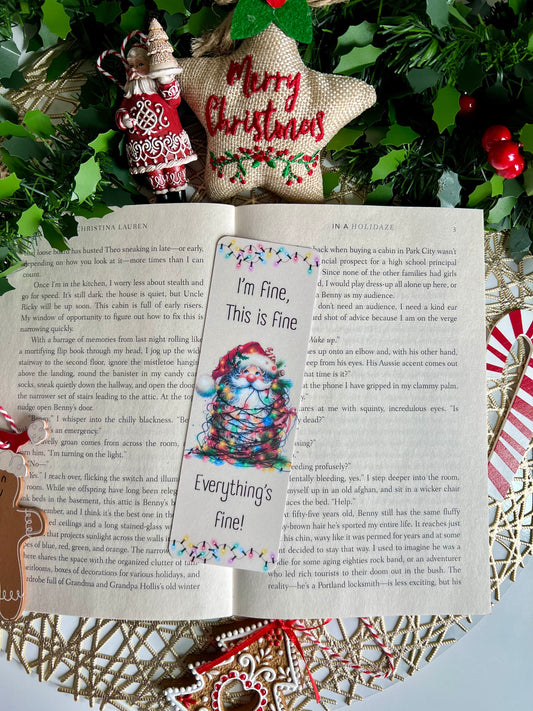 Merry
Christmas
CHRISTINA LAUREN
IN A HOLIDAZE
3
loose board has busted Theo sneaking in late—or early,
depending on how you look at it—more times than I can
count.
Once I'm in the kitchen, I worry less about stealth and
go for speed. It's still dark, the house is quiet, but Uncle
Ricky will be up soon. This cabin is full of early risers.
My window of opportunity to figure out how to fix this is
narrowing quickly.
With a barrage of memories from last night rolling like
a mortifying flip book through my head, I jog up the wide
stairway to the second floor, ignore the mistletoe hanging
above the landing, round the banister in my candy ca
socks, sneak quietly down the hallway, and open the door
the narrower set of stairs leading to the attic. At the to
nudge open Benny's door.
I whisper into the chilly blackness. "Be
an emergency."
velly groan comes from across the room,
m, I'm turning on the light."
"No—"
I reach over, flicking the switch and illumin
While we offspring have long been releg
nk beds in the basement, this attic is Benny's
mber, and I think it's the best one in th
ed ceilings and a long stained-glass w
that projects sunlight across the walls i
es of blue, red, green, and orange. The narro
here shares the space with the organized clutter of fa
eirlooms, boxes of decorations for various holidays, and
rdrobe full of Grandma and Grandpa Hollis's old winter
I'm fine,
This is fine
Everything's
fine!
back when buying a cabin in Park City wasn't
cial prospect for a high school principal
Since none of the other families had girls
I would play dress-up all alone up here, or
y Benny as my audience.
don't need an audience. I need a kind ear
rd shot of advice because I am on the verge
Wake up."
es up onto an elbow and, with his other hand,
eep from his eyes. His Aussie accent comes out
hat time is it?"
t the phone I have gripped in my clammy palm.
ares at me with squinty, incredulous eyes. "Is
eeding profusely?"
entally bleeding, yes." I step deeper into the room,
myself up in an old afghan, and sit in a wicker chair
aces the bed. "Help."
t fifty-five years old, Benny still has the same fluffy
y-brown hair he's sported my entire life. It reaches just
his chin, wavy like it was permed for years and at some
nt decided to stay that way. I used to imagine he was a
die for some aging eighties rock band, or an adventurer
who led rich tourists to their doom out in the bush. The
reality—he's a Portland locksmith—is less exciting, but his